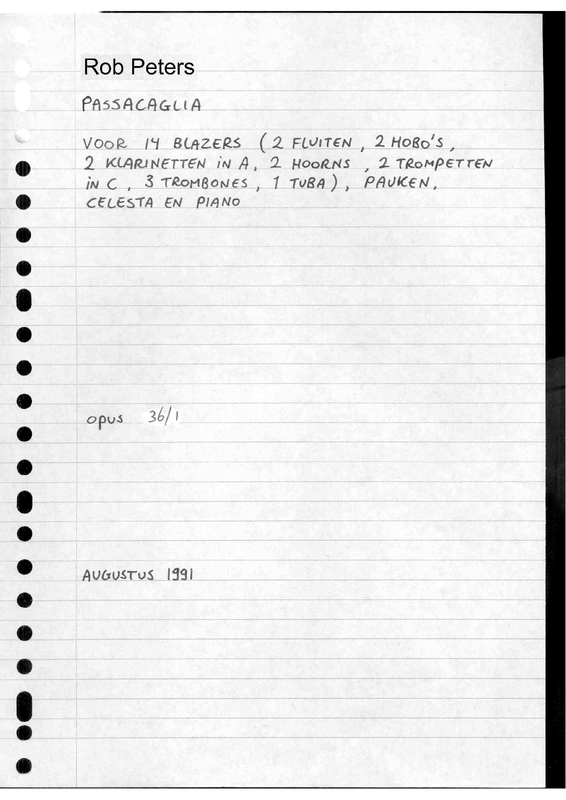 Rob Peters
PASSACAGLIA
VOOR 14 BLAZERS (2 FLUITEN, 2 HOBO'S,
2 KLARINETTEN in A, 2 HOORNS, 2 TROMPETTEN
in C, 3 TROMBONES, 1 TUBA), PAUKEN,
CELESTA EN PIANO
opus 36/1
AUGUSTUS 1991